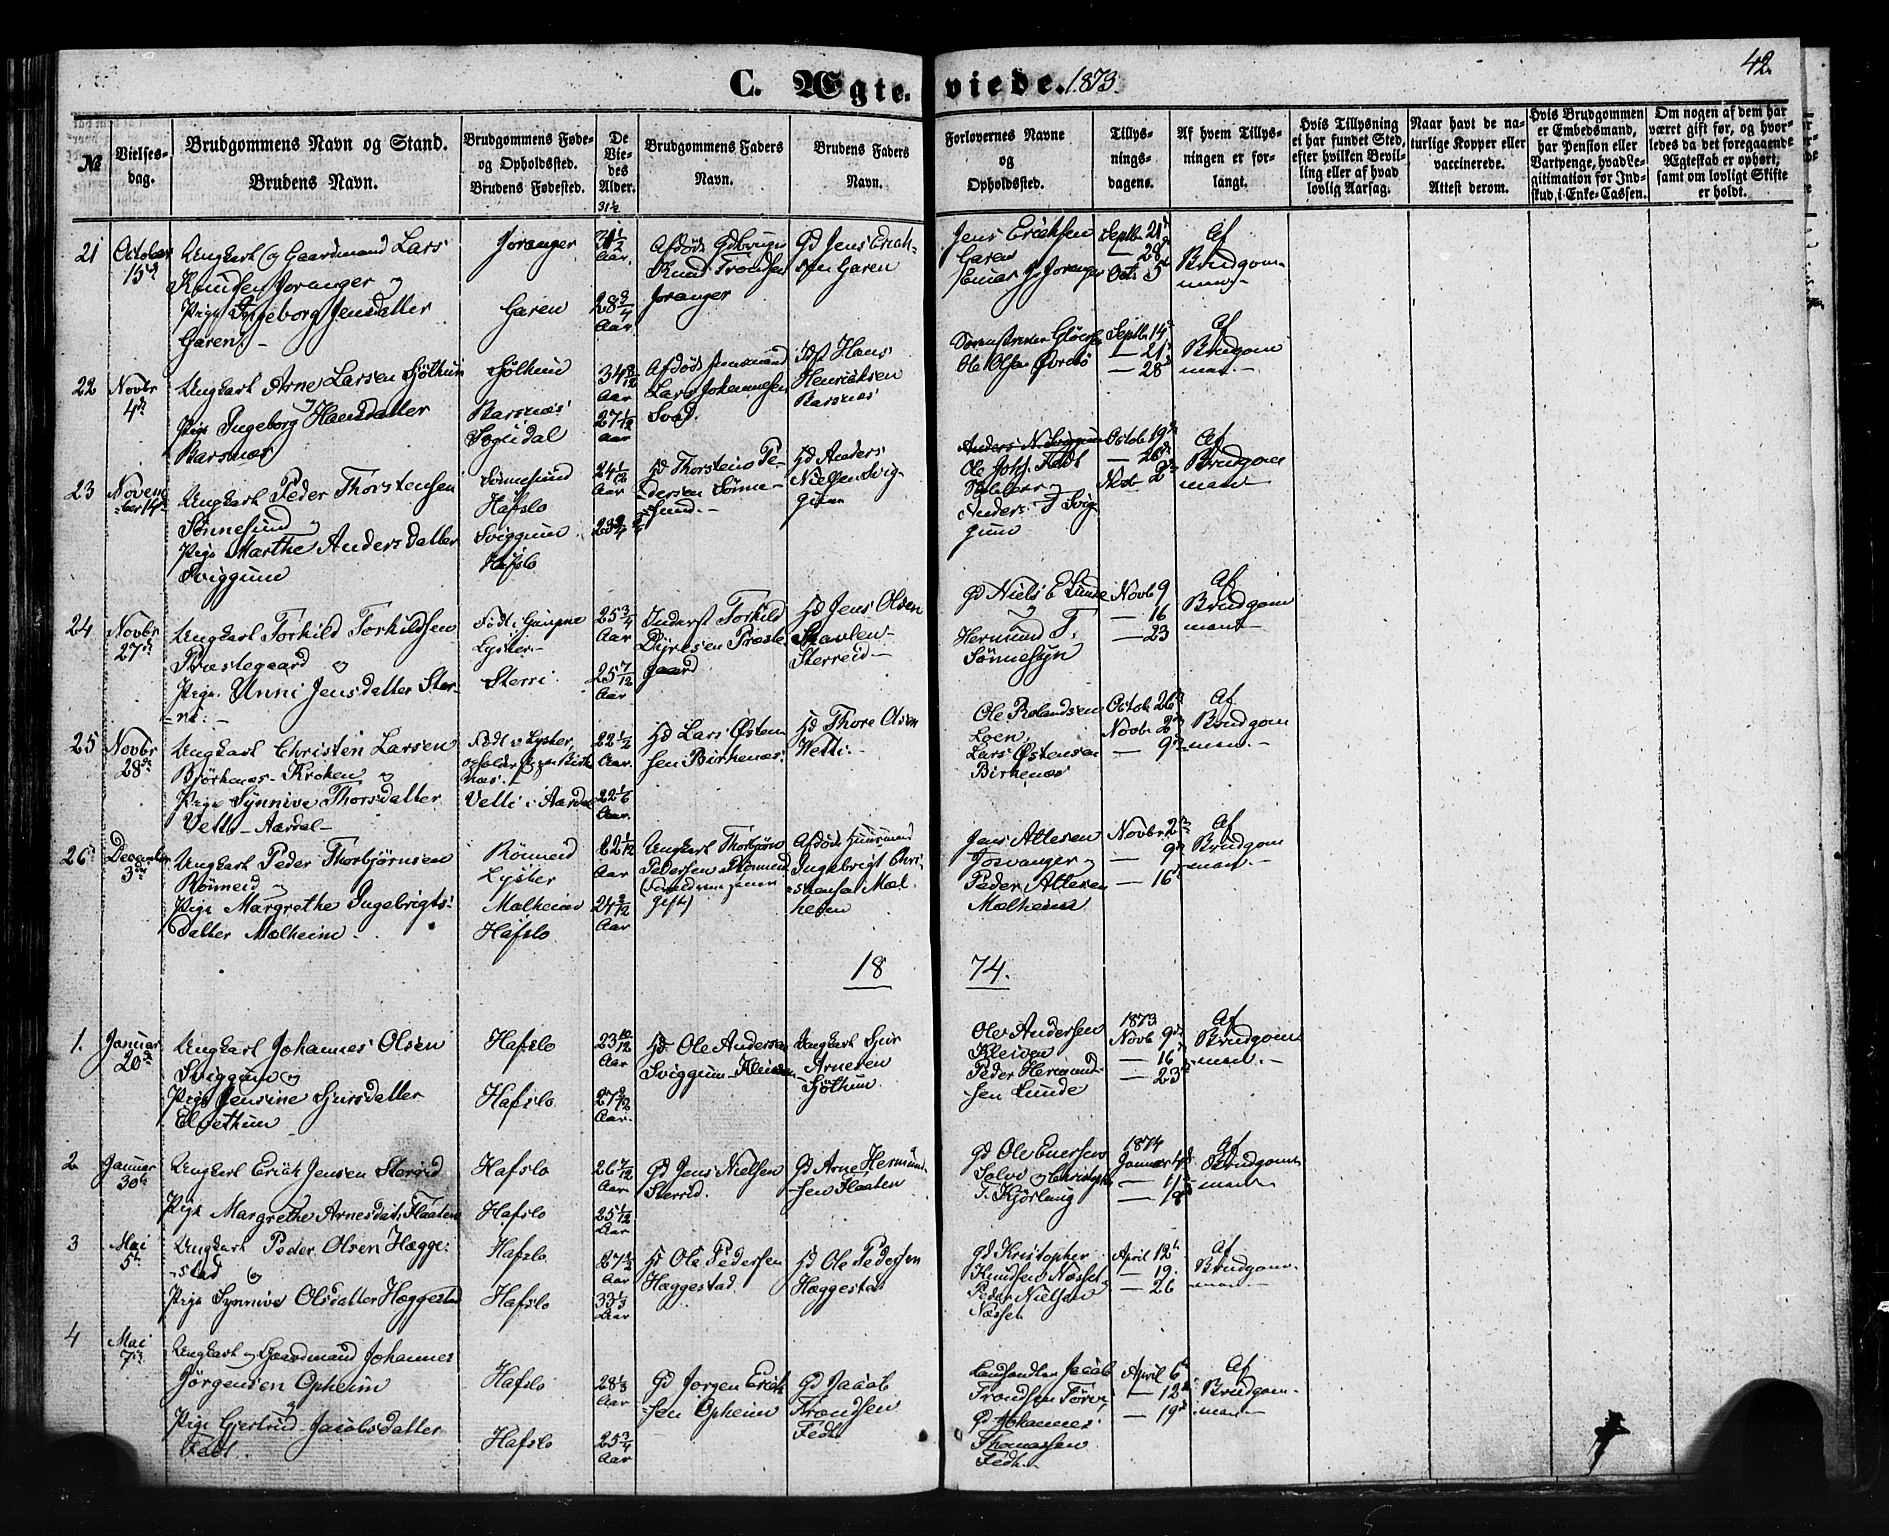 42.
C. Ægte. viede. 1873.
№
Vielses-
dag.
Brudgommens Navn og Stand.
Brudens Navn.
Brudgommens Føde-
og Opholdssted.
Brudens Fødested.
De
Vie-
des
Alder.
Brudgommens Faders
Navn.
Brudens Faders
Navn.
Forlovernes Navne
og
Opholdssted.
Tillys-
nings-
dagene.
Af hvem Tillys-
ningen er for-
langt.
Hvis Tillysning
ei har fundet Sted,
efter hvilken Bevil-
ling eller af hvad
lovlig Aarsag.
Naar havt de na-
turlige Kopper eller
vaccinerede.
Attest derom.
Hvis Brudgommen
er Embedsmand,
har Pension eller
Vartpenge, hvad Le-
gitimation for Ind-
skud i Enke-Cassen.
Om nogen af dem har
været gift før, og hvor-
ledes da det foregaaende
Ægteskab er ophørt,
samt om lovligt Skifte
er holdt.
21
October
15d
Ungkarl og Gaardmand Lars
Knudsen Joranger og
Pige Ingeborg Jensdatter
Garen.
Joranger
Garen
31½
Aar.
28 3/4
Aar.
Afdøde Gdbruger
Knud Trondsen
Joranger
Gd Jens Erich-
sen Garen
Jens Erichsen
Garen
Joranger
Septb. 21
— 28
Oct. 5
Af
Brudgom-
men.
22
Novbr
4d
Ungkarl Arne Larsen Hjølhum
Pige Ingeborg Hansdatter
Barsnæs
Barsnæs
Sogndal
34 8/12
Aar
27 1/12
Aar
Afdøde Huusmand
Lars Johannesen
Hans
Henrichsen
Barsnæs
Ole Olsen
Septb. 14
— 21
— 28
Af
Brudgom
men.
23
Novem
-ber 14
Ungkarl Peder Thorstensen
Sønnesund og
Pige Marthe Anders datter
Sviggum
Sønnesund
Hafslo
Sviggum
Hafslo
24 1/12
Aar
Gd Thorstens Pe-
dersen Sønne-
sund.
Gd Anders
Nielsen Svig-
gum
Ole Joh. Fedt
Anders Svig
gum
Octob. 19
— 26
Nob. 2
Af
Brudgom
men
24
Novbr
27d
Ungkarl Torkild Torkildsen
Præstegaard og
Pige. Unni Jensdatter Ster-
-ri.
Født i Gaupne
Lyster
Sterri
25 3/4
Aar
25 7/12
Aar
Inderst Torkild
Præste
gaard
Gd Jens Olsen
Sterreid
Gd Niels E Lunde
og
Hermund T.
Sønnesyn
Novb 9
— 16
— 23
Af
Brudgom
men
25
Novbr
28d
Ungkarl Christen Larsen
Bjørkenæs-Kroken og
Pige Synnive Thorsdatter
Vetti-Aardal
Født i Lyster
Vetti i Aardal
22 1/2
Aar.
22 1/6
Aar.
Gd Lars Østen
sen Birkenæs.
Gd Thore Olsen
Vetti.
Ole Rolandsen
Loen,
Lars Østensen
Birkenæs
Octob. 26
Novb. 2
— 9
Af
Brudgom
men.
26
December
3d
Ungkarl Peder Thorbjørnsen
Rønneid og
Pige Margrethe Ingebrigts-
datter Molheim.
Rønneid
Lyster
Molheim
Hafslo
22 1/12
Aar
24 3/12
Aar
Ungkarl Thorbjørn
Pedersen Rønneid
gift)
Afdøde Huusmand
Ingebrigt Chri-
Mol-
heim
Jens Attesen
Joranger og
Peder Attesen
Molheim
Novbr 2
— 9
— 16
Af
Brudgom
men.
18 74.
1.
Januar
20d
Ungkarl Johannes Olsen
Sviggum og
Pige Jensine Sjursdatter
Elvethun
Hafslo
Hafslo
23 10/12
Aar
27
Aar.
Gd Ole Andersen
Sviggum-Kleiven
Ungkarl Sjur
Arnesen
Hjølhum
Ole Andersen
Kleiven
Peder Hermund-
sen Lunde
1873
Novb 9
— 16
— 23
Af
Brudgom
men.
2
Januar
30d
Ungkarl Erich Jensen Sterrid
Pige Margrethe Arnesdat. Flaaten
Hafslo
Hafslo
26 7/12
Aar
25 1/12
Aar
Gd Jens Nielsen
Sterrid.
Gd Arne Hermund-
-sen Flaaten
Gd Ole Enersen
Solvi og
T. Kjørlaug
1874
Januar 4
— 11
— 18
Af
Brudgom
men
3
Mai
5t
Ungkarl Peder Olsen Hægge-
-stad og
Pige Synnive Olsdatter Hæggestad
Hafslo
Hafslo
27 1/2
Aar
33 1/3
Aar
Gd Ole Pedersen
Hæggestad.
Gd Ole Pedersen
Hæggestad
Gd Kristopher
Knudsen Næsset
Peder Nielsen
Næsset
April 12
— 19.
— 26
Af
Brudgom-
men
4
Mai
7d
Ungkarl og Gaardmand Johannes
Jørgensen Opheim
og
Pige Gjertrud Jacobsdatter
Fedt.
Hafslo
Hafslo
28 1/3
Aar
25 3/4
Aar
Gd Jørgen Erich-
-sen Opheim
Gd Jacob
Trondsen
Fedt.
Landhandler Jacob
Trondsen
Gd Johannes
Thomassen
Fedt.
April 6
— 12
— 19
Af
Brudgom-
men